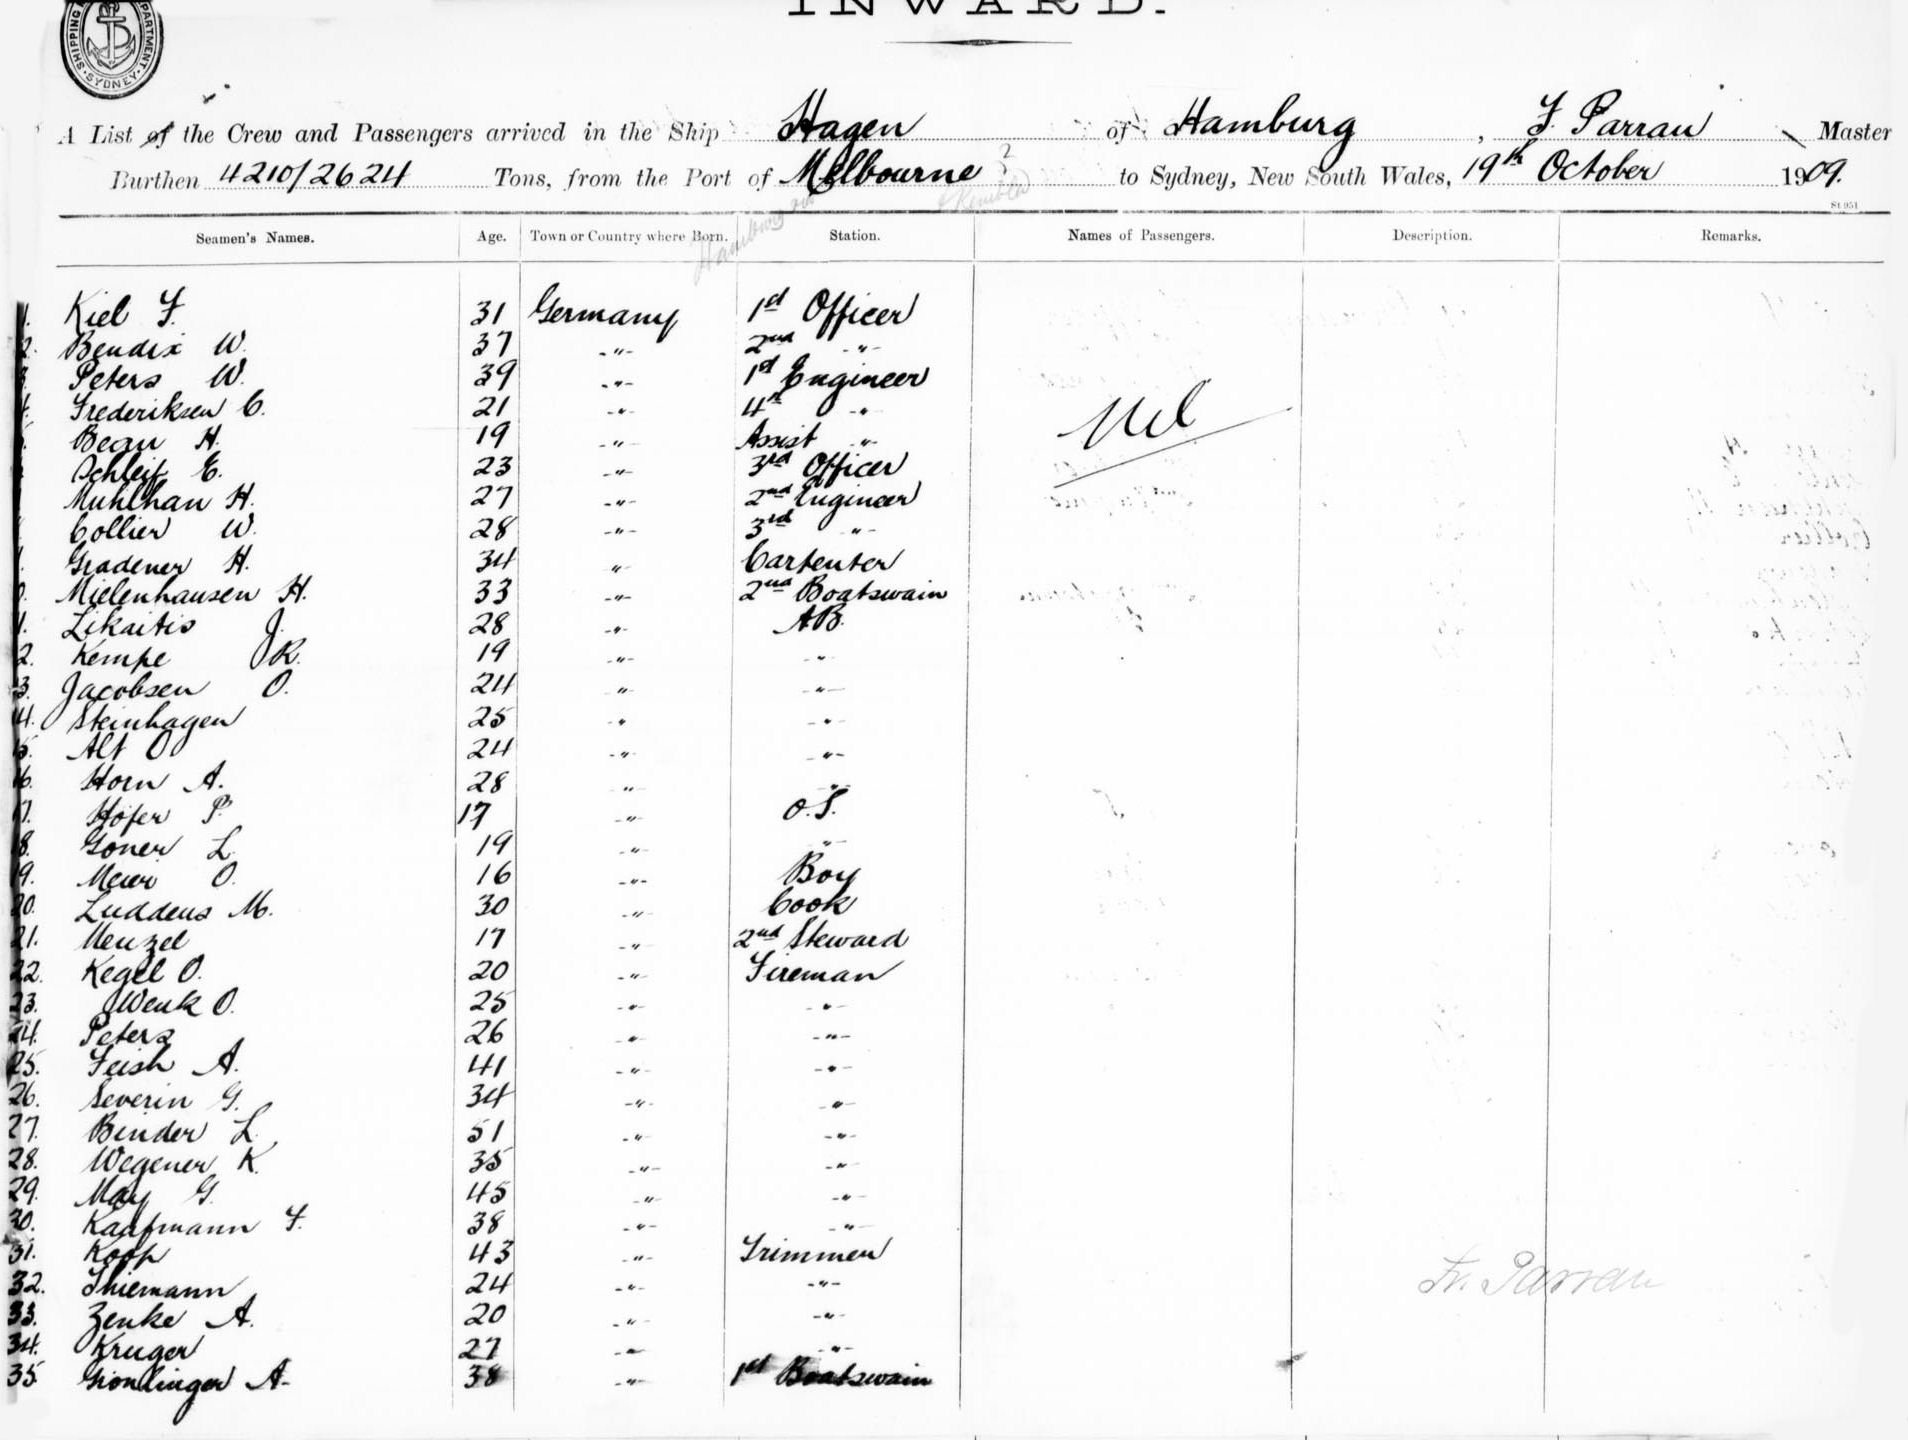 INWARD.
SHIPPING DEPARTMENT SYDNEY
A List of the Crew and Passengers arrived in the Ship Hagen of Hamburg, F. Parrau Master
Burthen 4210/2624 Tons, from the Port of Melbourne to Sydney, New South Wales, 19th October 1909.
St 951
Seamen's Names. Age. Town or Country where Born. Station. Names of Passengers. Description. Remarks.
1. Kiel F. 31 Germany 1st Officer
2. Bendix W. 37 -"- 2nd -"-
3. Peters W. 39 -"- 1st Engineer
4. Frederiksen C. 21 -"- 4th -"- Nil
Begu H. 19 -"- Assist -"-
Schleif E. 23 -"- 3rd Officer
Muhlhan H. 27 -"- 2nd Engineer
Collier W. 28 -"- 3rd -"-
Gradener H. 34 -"- Carpenter
Mielenhausen H. 33 -"- 2nd Boatswain
1. Likaitis J. 28 -"- A.B.
2. Kempe R. 19 -"- -"-
3. Jacobsen O. 24 -"- -"-
14. Steinhagen 25 -"- -"-
15. Alt O 24 -"- -"-
16. Horn A. 28 -"- -"-
17. Höfer P. 17 -"- O.S.
18. Goner L. 19 -"- -"-
19. Meier O. 16 -"- Boy
20. Luddeus M. 30 -"- Cook
21. Menzel 17 -"- 2nd Steward
22. Kegel O. 20 -"- Fireman
23. Wenk O. 25 -"- -"-
24. Peters 26 -"- -"-
25. Feish A. 41 -"- -"-
26. Severin G. 34 -"- -"-
27. Binder L. 51 -"- -"-
28. Wegener K. 35 -"- -"-
29. May G. 45 -"- -"-
30. Kaufmann F. 38 -"- -"-
31. Koop 43 -"- Trimmer
32. Thiemann 24 -"- -"- Fr. Parrau
33. Zenke A. 20 -"- -"-
34. Kruger 27 -"- -"-
35 A. 38 -"- 1st Boatswain